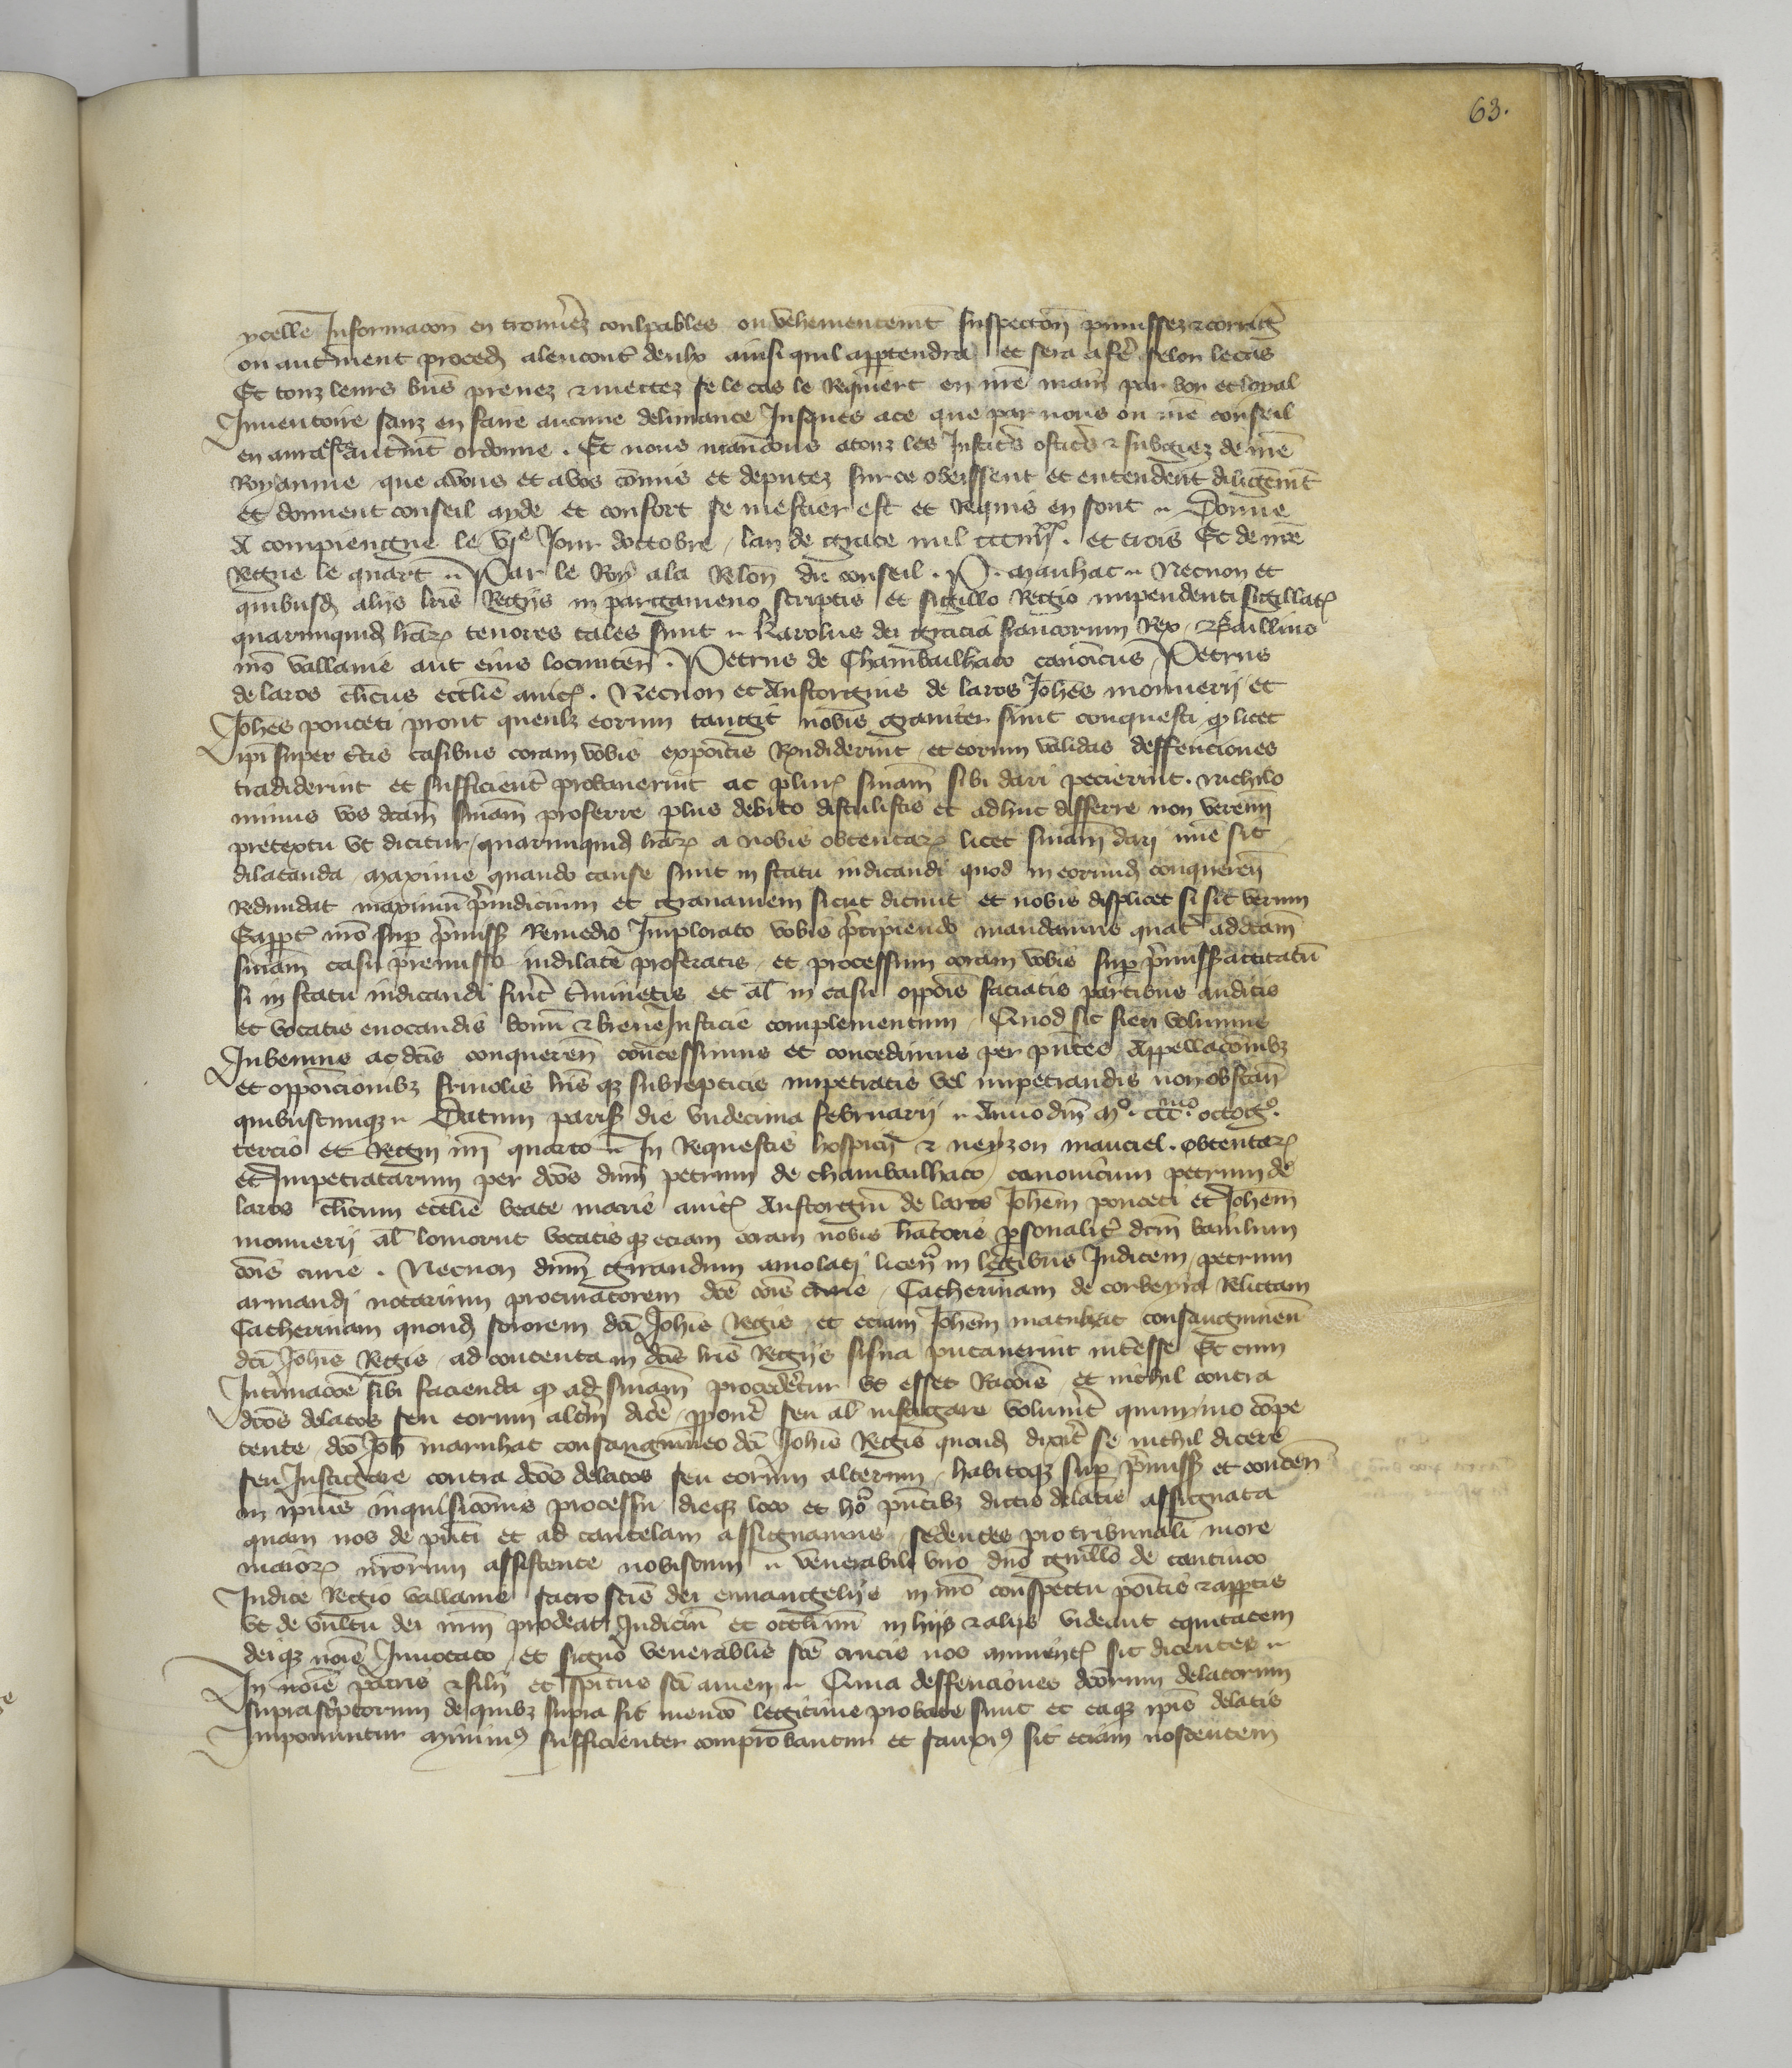 63.
ycelle Informacon en trouuez coulpables ou vehementemt suspeconn punissez & corrig
ou autrement proced alencontr deulx ainsi quil appartendra et sera a fe selon le cas
Et touz leurs bns prenez & mettez se le cas le Requiert en nre main par bon et loyal
Inuentoire sanz en faire aucune deliurance Jusques ace que par nous ou nre conseil
en aura este autremt ordonne . Et nous mandons atouz les Justicrs officrs & subgiez de nre
Royaume que a vous et a vos commis et deputez sur ce obeissent et entendent diligemt
et donnent conseil ayde et confort se mestier est et Requis en sont Donne
A compiengne le vje Jour doctobre lan de grace mil ccciiijxx . et trois Et de nre
Regne le quart Par le Roy ala Relon du conseil . P . manhac Necnon et
quibusd alijs lris Regijs in pargameno scriptis et sigillo Regio impendenti sigillat
quarumquid lrar tenores tales sunt Karolus dei gracia francorum Rex Baillivo
nro vallavie aut eius locumten . Petrus de Chambailhaco canonicus Petrus
de laros clicus ecclie anic . Necnon et Austorgius de laros Johes monnerij et
Johes ponceti prout quemlz eorum tangit nobis grauiter sunt conquesti q licet
ipi super ctis casibus coram vobis expoitis Rndiderint et eorum validas deffenciones
tradiderint et sufficient probauerint ac plur sniam sibi dari pecierint . nichilo
minus vos dcam sniam proferre plus debito distulistis et adhuc differre non veremi
pretextu vt dicitur quarumquid lrar a nobis obtentar licet sniam dari mie sit
dilatanda maxime quando cause sunt in statu iudicandi quod in eorumd conqueren
Redundat maximu preiudicium et grauamen sicut dicunt et nobis displicet si sit verum
Eappt nro sup premiss Remedio Implorato vobis precipiendo mandamus quat ad dcam
sniam casu premisso indilate proferatis et processum coram vobis sup premiss actitatu
si in statu iudicandi fuerit terminetis et al in casu opposis faciatis partibus auditis
et vocatis euocandis bonu & breue Justicie complementum Quod sic fieri volumus
Jubemus ac dcis conqueren concessimus et concedimus per pntes Appellacoibz
et oppoicionibz friuolis lris qz subrepticiis impetratis vel impetrandis non obstan
quibuscumqz Datum paris die vndecima februarij Anno dni mo . ccc . octog .
tercio et Regni nri quarto In Requestis hospicij & neyzon manciel . obtentar
et Impetratarum per dcos dnm petrum de chambailhaco canonicum petrum de
laros clicum ecclie beate marie anic Austorgiu de laros Johem ponceti et Johem
monnerij al lomorut vocatis qz eciam coram nobis personalit dcm bailiuum
dcis curie . Necnon dnm girandum licen in legibus Judicem petrum
armandj notarium procuratorem dce cois curie Catherinam de corbeyra Relictam
Catherinam quond sororem dci Johis Regis et eciam Johem marnhac consanguineu
dci Johis Regis ad contenta in dcis lris Regijs sisua putauerint intesse Et cum
Intimacoe sibi facienda q ad sniam procederetur vt esset Racois et nichil contra
dcos delatos seu eorum altem dice pponere seu al instigare voluerit quinymo compe
tente dco Joh marnhac consanguineo dci Johis Regis quond dixerit se nichil dicere
seu Instigare contra dcos delatos seu eorum alterum habitoqz sup premiss et conten
in ipius inquisicois processu dieqz loco et ho pntibz dictis delatis assignata
quam nos de pnti et ad cautelam assignamus sedentes pro tribunali more
maior nrorum assistente nobiscum venerabili viro dno guillo de
Judice Regio vallauie sacro scis dei euuangelijs in nro conspectu poitis & appertis
vt de vultu dei nrm prodeat Judiciu et occli nri in hijs & alijs videant equitatem
deiqz noie Inuocato et signo venerabilis sce crucis nos munient sic dicentes
In noie patris & filij et spitus sci amen Quia deffenciones dcorum delatorum
suprascriptorum de quibz supra fit mencio legitime probate sunt et eaqz ipis delatis
Imponuntur minus sufficienter comprobantur et sit eciam nocentem